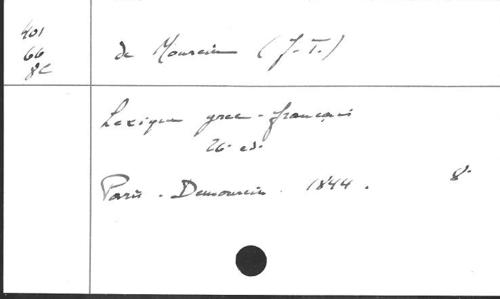 401
66
8C
de Mourcin (J-T.)
Lexique grec-français
26 ed.
Paris - Demourcin. 1844.
8°